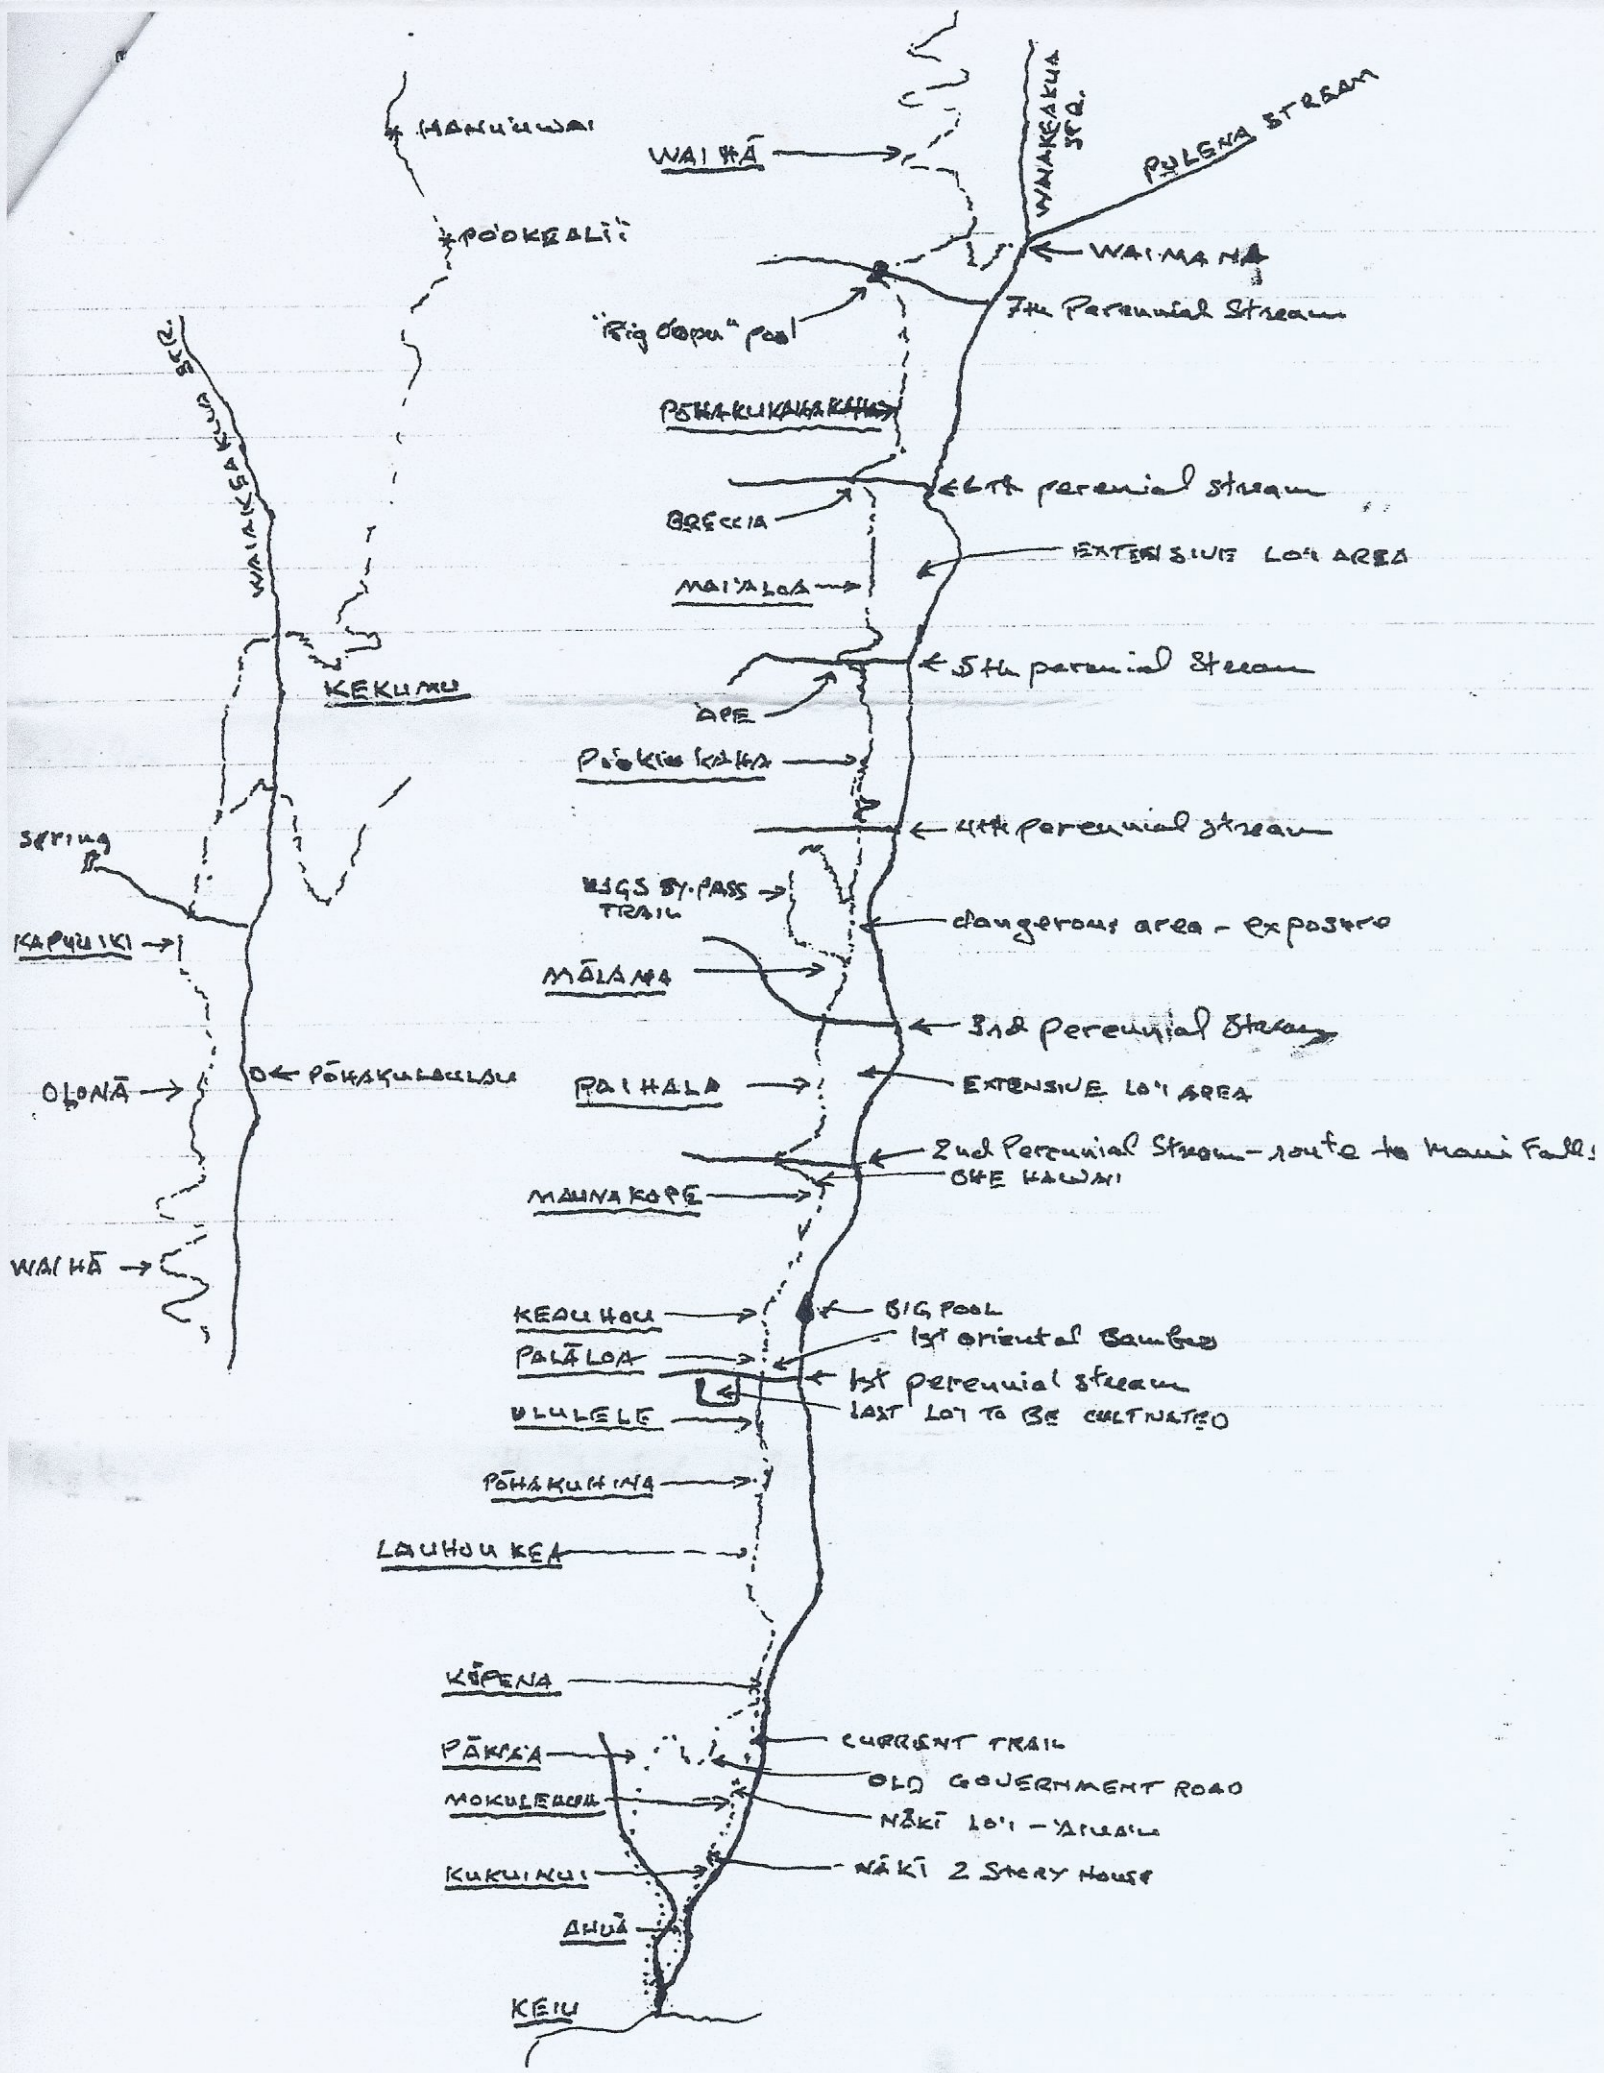 HANU'UWAI
PO'OKEALI'I
WAIHĀ
WAIAKEAKUA
STR.
PULENA STREAM
WAIMANA
7th Perennial Stream
"Big Oopu" pool
STR.
WAIAKEAKUA
6th perenial stream
BRECCIA
EXTENSIVE LO'I AREA
MAI'ALOA
5th perenial Stream
KEKUMU
APE
4th perennial stream
spring
BY-PASS
TRAIL
dangerous area - exposure
MĀLAMA
3rd perennial Stream
OLONĀ
PŌHAKULAULAU
PAIHALA
EXTENSIVE LO'I AREA
2nd Perennial Stream - route to Maui Falls
OHE HAWAII
MAUNAKOPE
WAIHĀ
KEAUHOU
BIG POOL
1st oriental Bamboo
PALĀLOA
1st perennial stream
LAST LO'I TO BE CULTIVATED
ULULELE
PŌHAKUHINA
LAUHOUKEA
KŌPENA
CURRENT TRAIL
OLD GOVERNMENT ROAD
NĀKĪ LO'I -
KUKUINUI
NĀKĪ 2 STORY HOUSE
KEIU